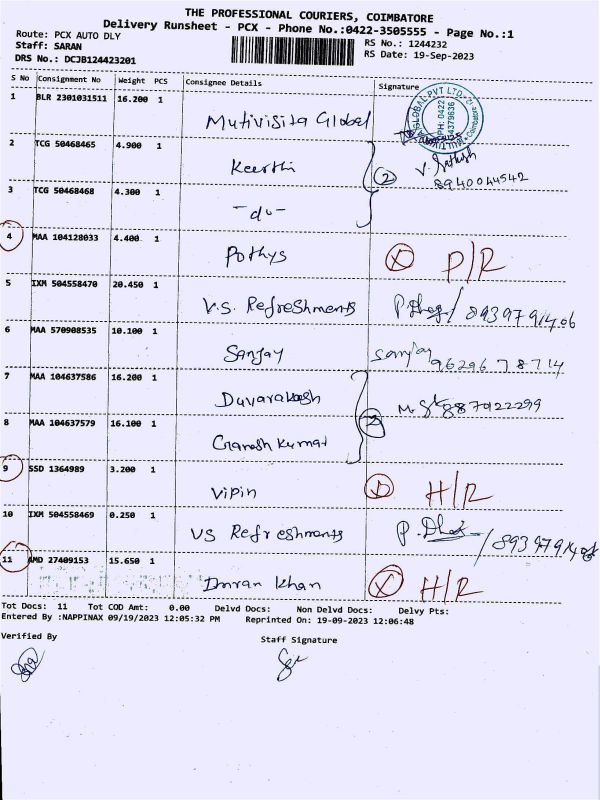 THE PROFESSIONAL COURIERS, COIMBATORE
Delivery Runsheet - PCX - Phone No.:0422-3505555 - Page No.:1
Route: PCX AUTO DLY
Staff: SARAN
DRS No.: DCJB124423201
RS No.: 1244232
RS Date: 19-Sep-2023
S No Consignment No Weight PCS Consignee Details Signature
1 BLR 2301031511 16.200 1 Mutivisita Global
GLOBAL PVT LTD
PH: 0422
4379636
2 TCG 50468465 4.900 1 Keerthi 2 V. Sathish
8940044542
3 TCG 50468468 4.300 1 -do-
4 MAA 104128033 4.400 1 Pothys X P/R
5 IXM 504558470 20.450 1 V.S. Refreshments / 8939791406
6 MAA 570908535 10.100 1 Sanjay Sanjay 9629678714
7 MAA 104637586 16.200 1 Duvarakesh
8 MAA 104637579 16.100 1 Ganesh Kumar
9 SSD 1364989 3.200 1 Vipin H/R
10 IXM 504558469 0.250 1 VS Refreshments / 8939791406
11 AMD 27409153 15.650 1 Imran Khan X H/R
Tot Docs: 11 Tot COD Amt: 0.00 Delvd Docs: Non Delvd Docs: Delvy Pts:
Entered By :NAPPINAX 09/19/2023 12:05:32 PM Reprinted On: 19-09-2023 12:06:48
Verified By Staff Signature